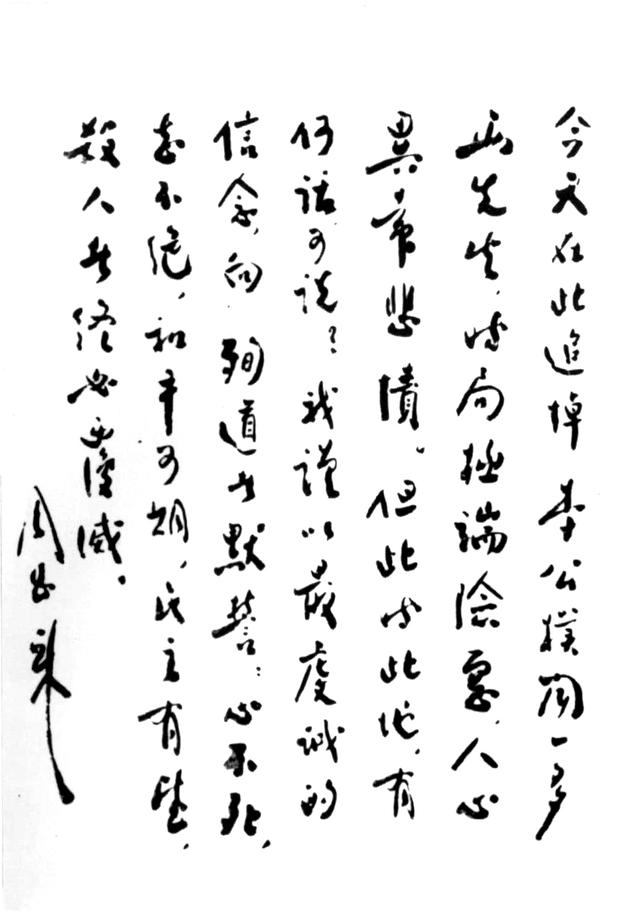 今天在此追悼李公樸聞一多
两先生，時局極端險惡，人心
異常悲憤。但此时此地，有
何話可說？我謹以最虔誠的
信念，向殉道者默誓：心不死，
志不绝，和平可期，民主有望，
殺人者终必覆滅。
周恩来